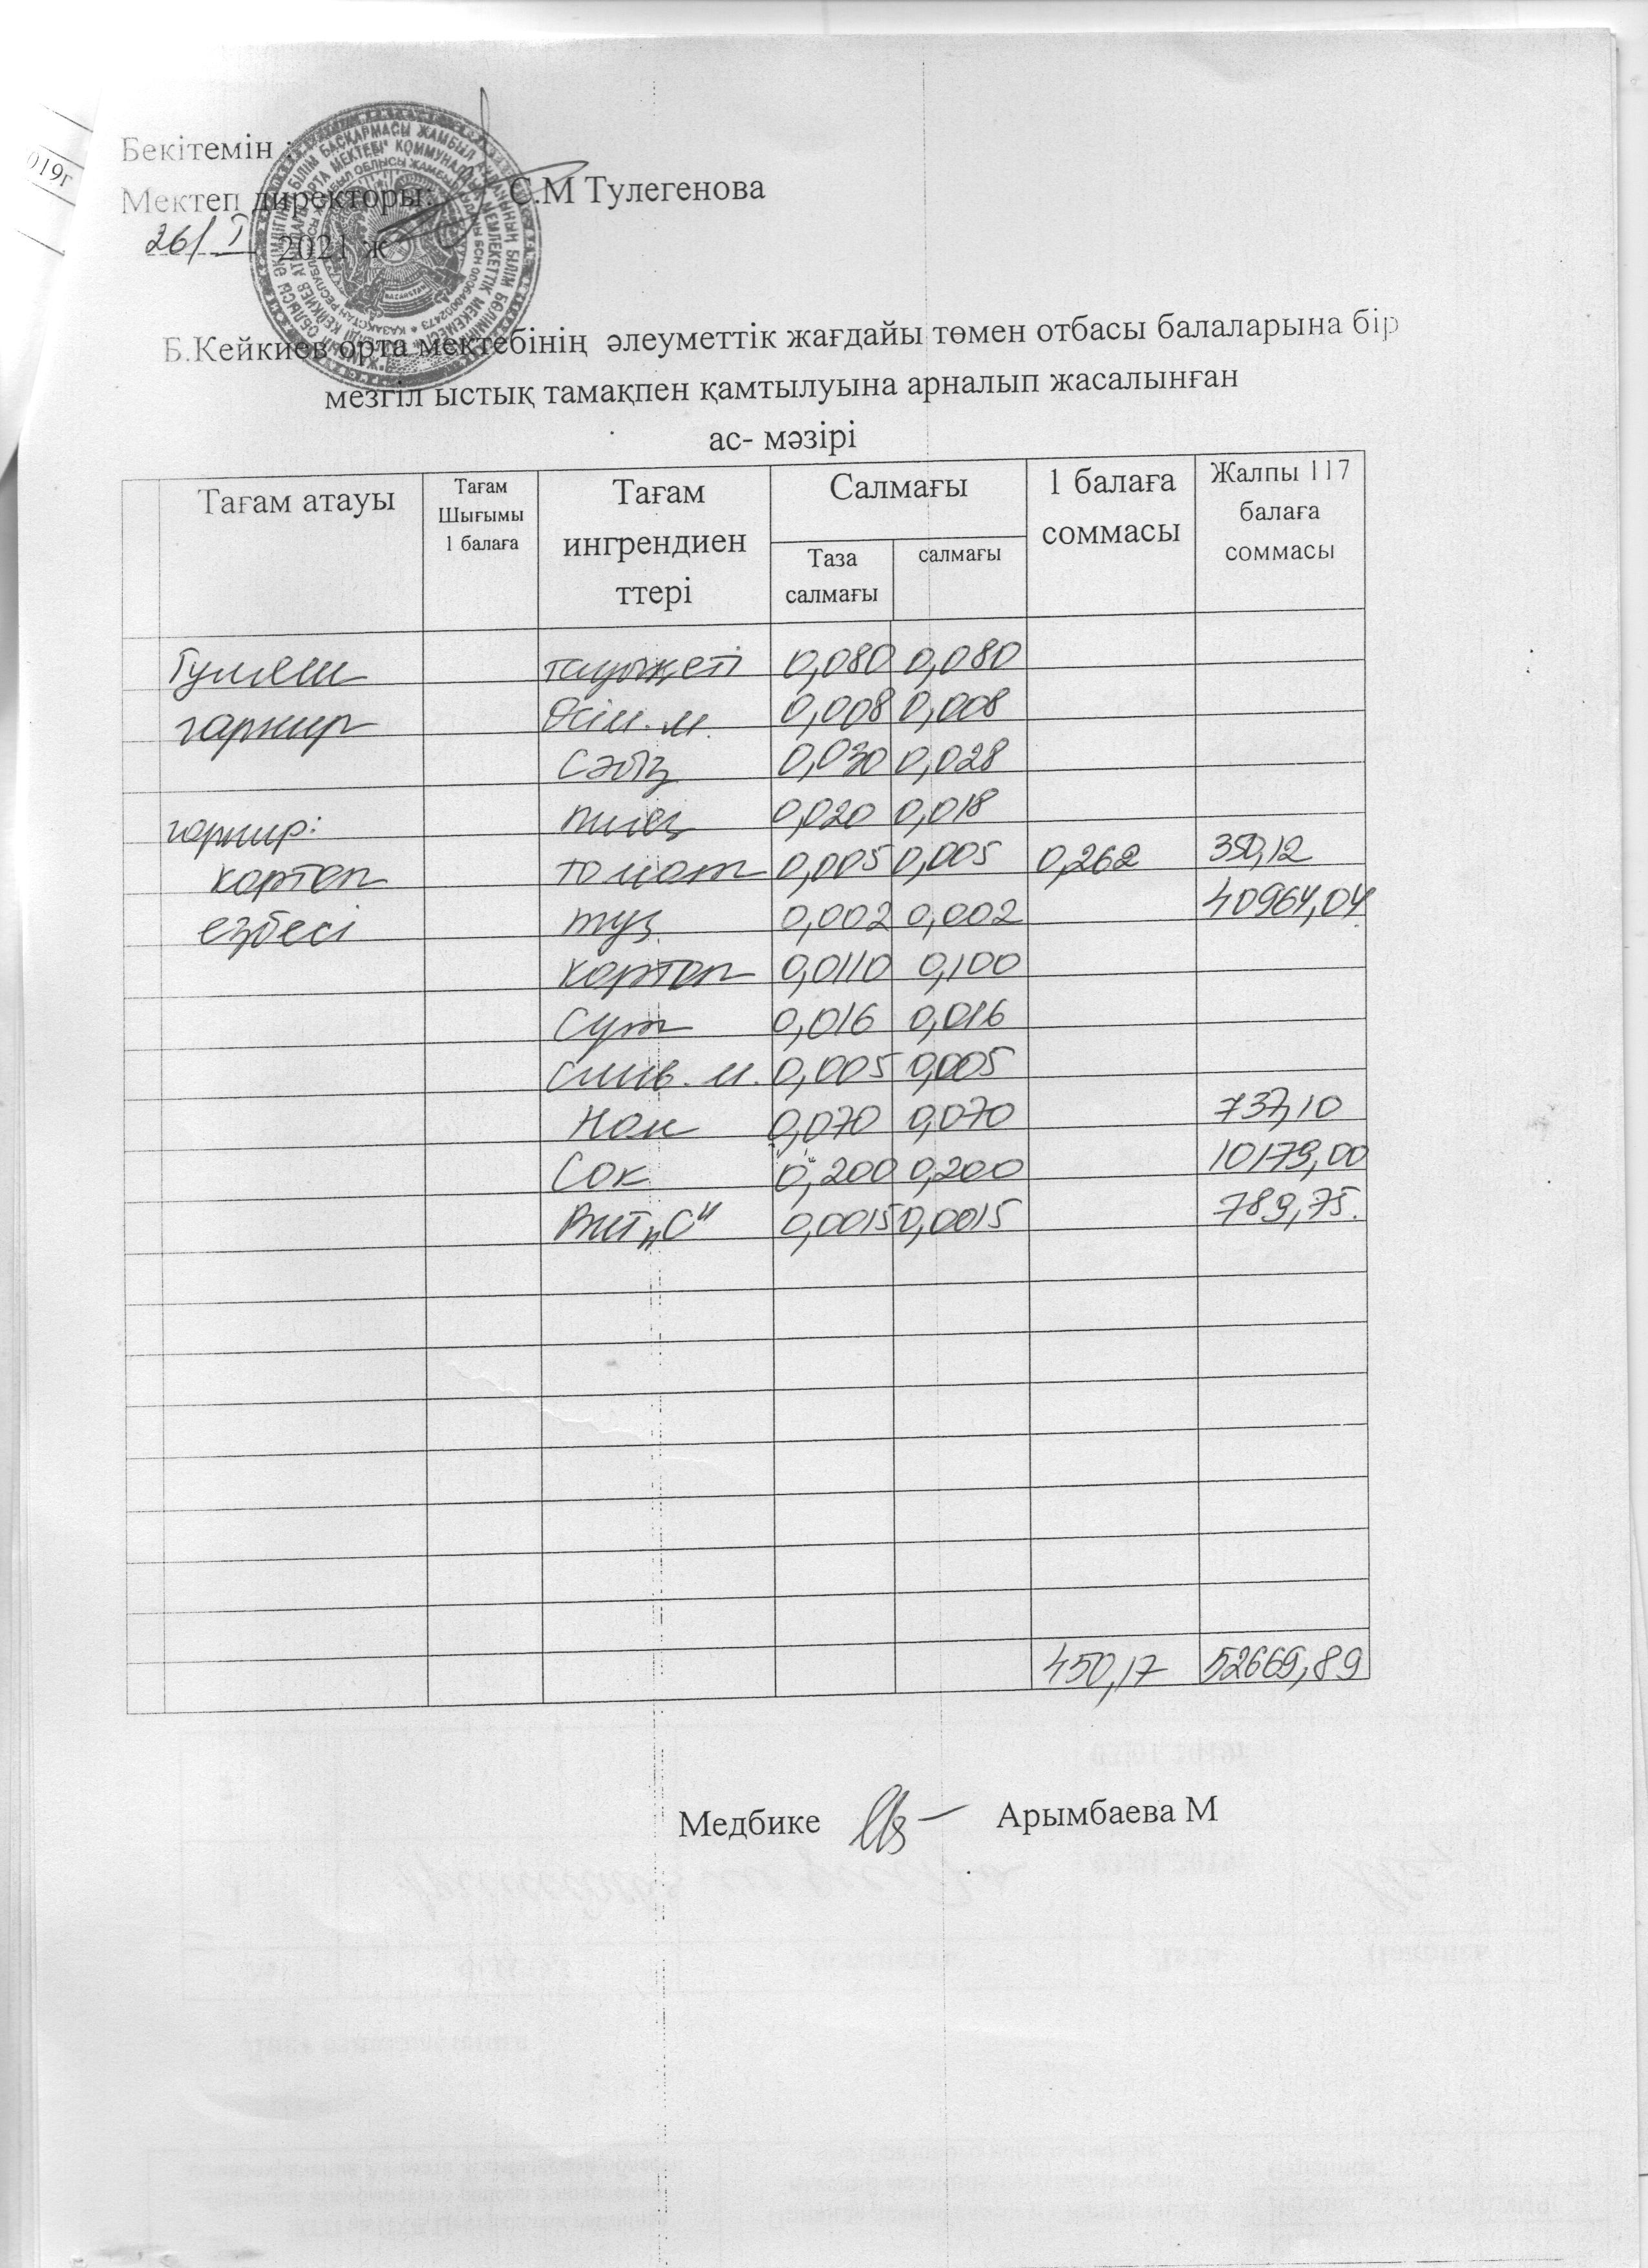 019г
Бекітемін :
Мектеп директоры: С.М Тулегенова
26/ I 2021 ж
Б.Кейкиев орта мектебінің әлеуметтік жағдайы төмен отбасы балаларына бір
мезгіл ыстық тамақпен қамтылуына арналып жасалынған
ас- мәзірі
Тағам атауы Тағам Шығымы 1 балаға Тағам ингрендиен ттері Салмағы Таза салмағы салмағы 1 балаға соммасы Жалпы 117 балаға соммасы
Гуляш тауықеті 0,080 0,080
гарнир Өсім.м. 0,008 0,008
Сәбіз 0,030 0,028
гарнир: пияз 0,020 0,018
картоп томат 0,005 0,005 0,262 350,12
езбесі тұз 0,002 0,002 40964,04
картоп 0,0110 0,100
Сүт 0,016 0,016
Слив.м. 0,005 0,005
Нан 0,070 0,070 737,10
Сок 0,200 0,200 10179,00
Вит „С" 0,0015 0,0015 789,75.
450,17 52669,89
Медбике Арымбаева М